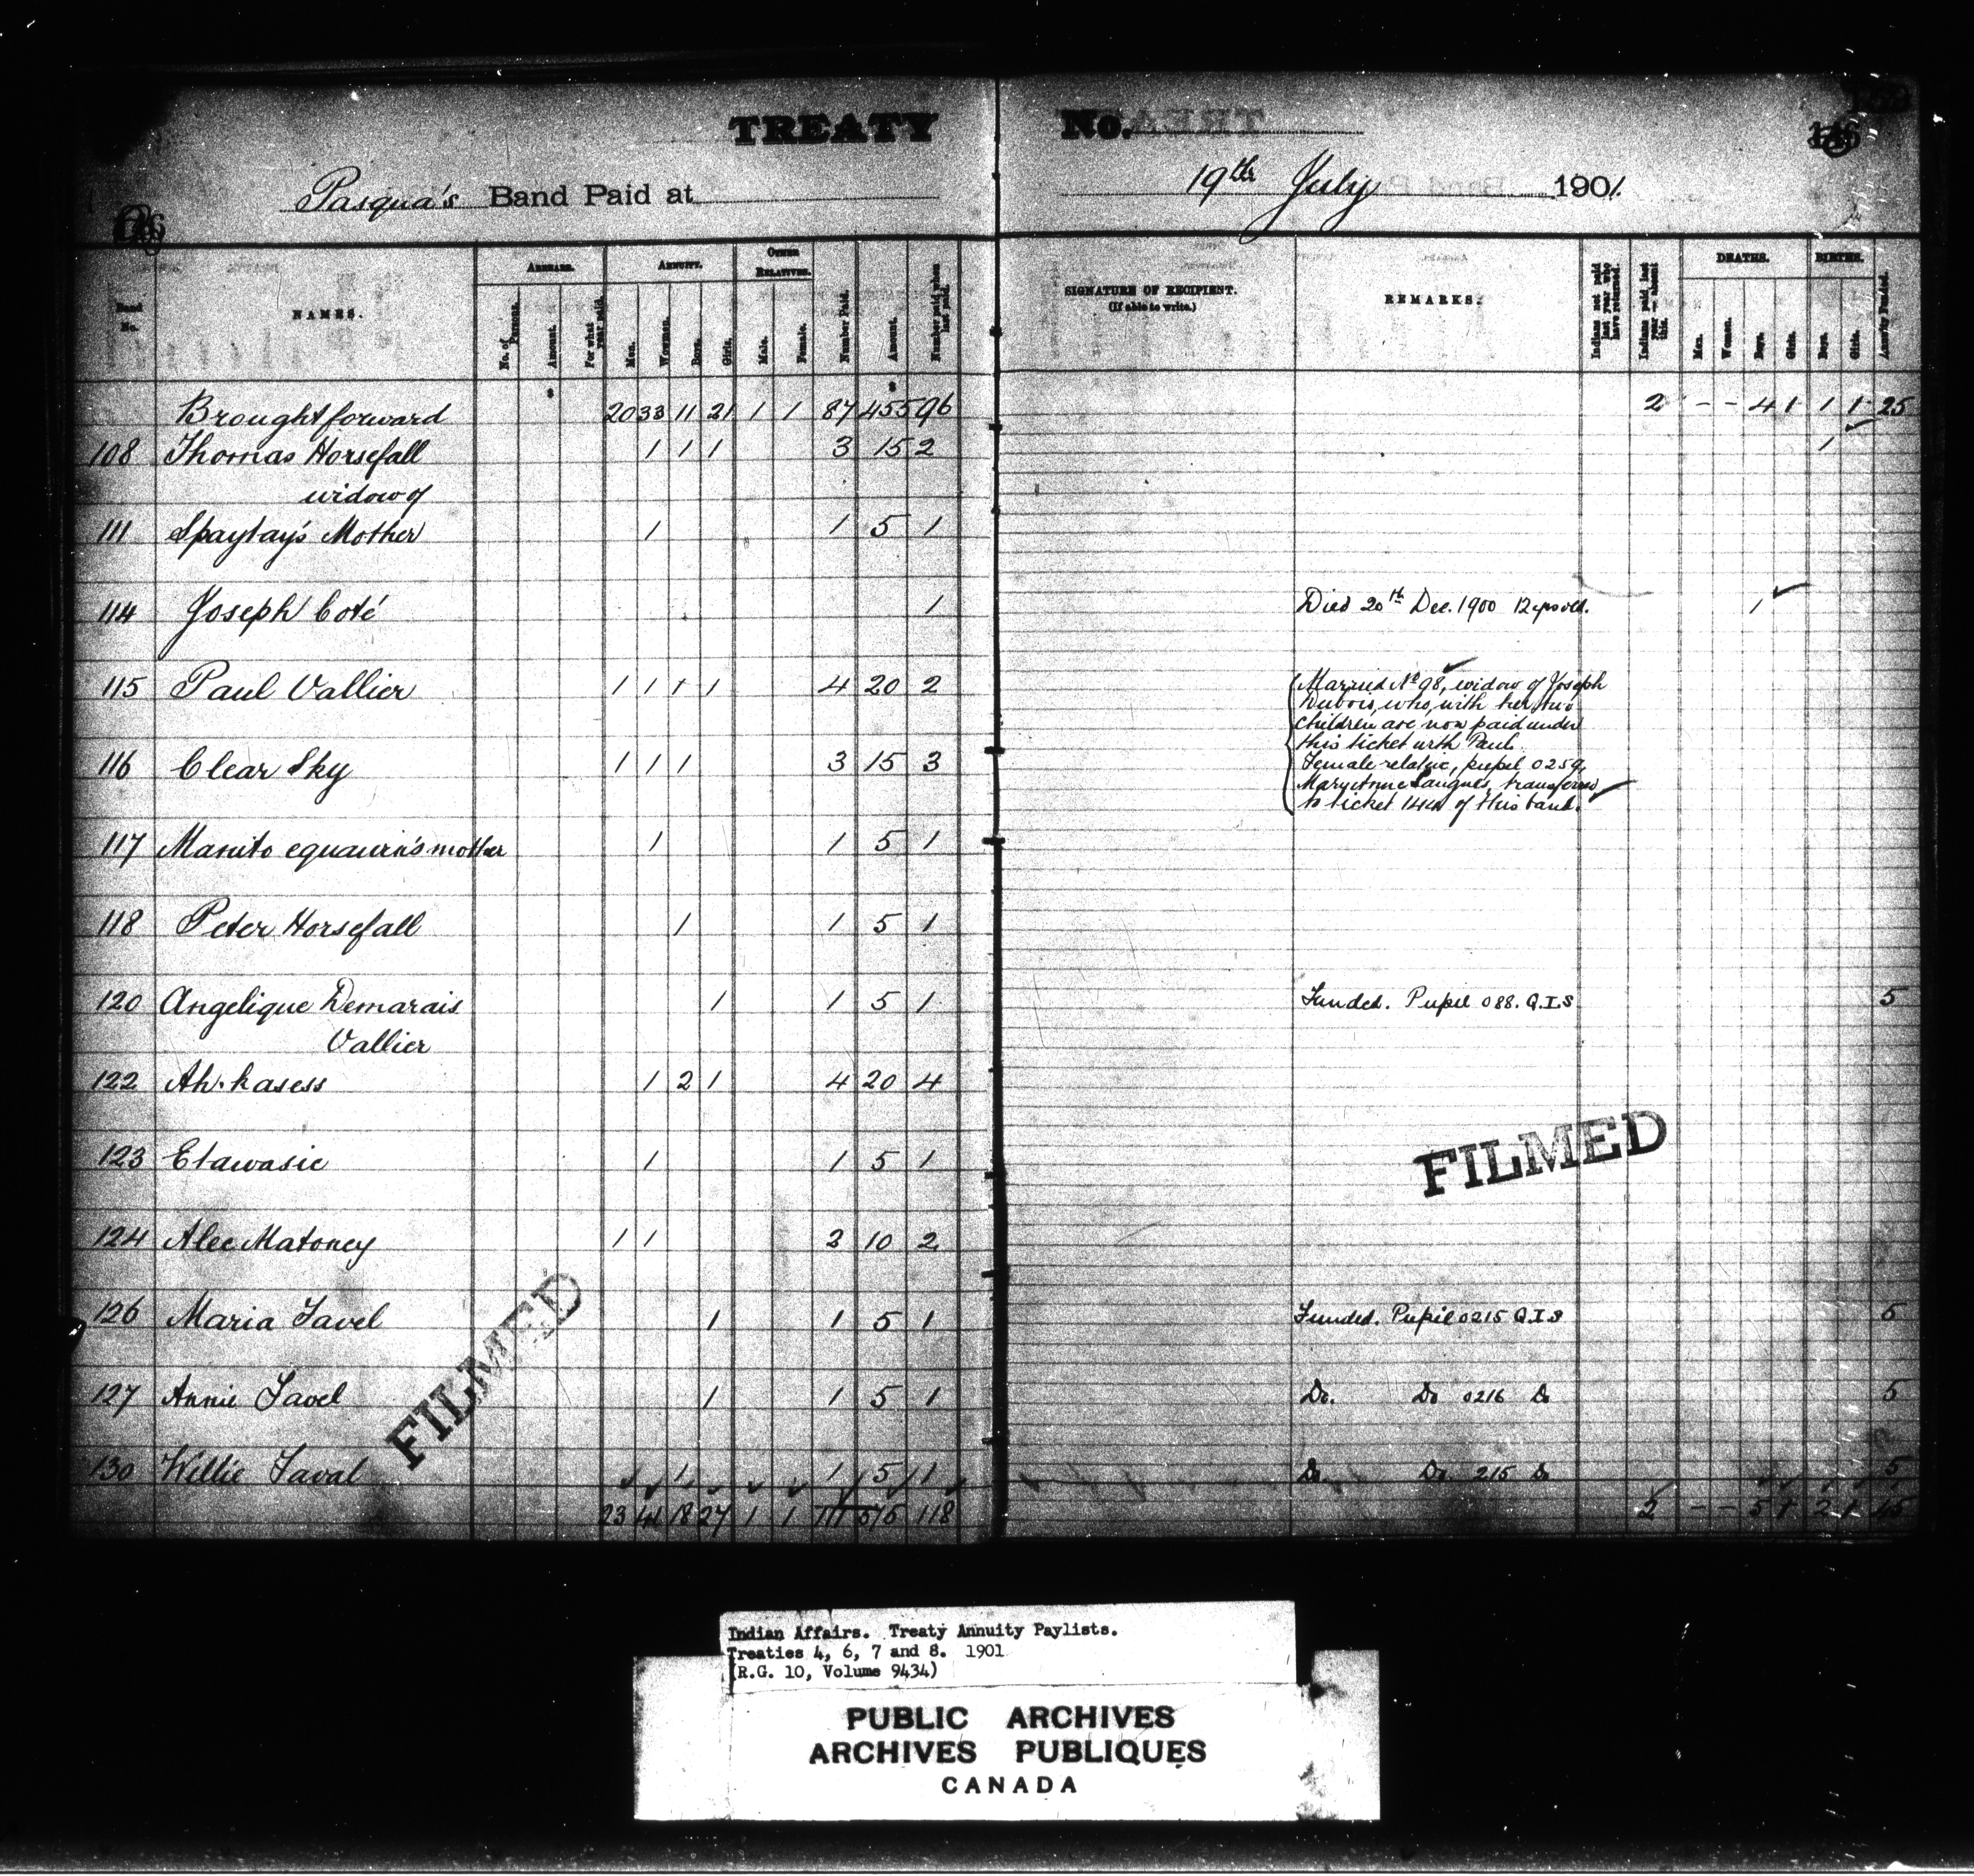 TREATY No.
146
Pasqua's Band Paid at 19th July 1901.
Band No. NAMES. ARREARS. No. of Persons. Amount. For what year paid. ANNUITY. Men. Women. Boys. Girls. OTHER RELATIVES. Male. Female. Number Paid. Amount. Number paid when last paid. SIGNATURE OF RECIPIENT. (If able to write.) REMARKS. Indians not paid last year who have returned. Indians paid last year - absent this. DEATHS. Men. Women. Boys. Girls. BIRTHS. Boys. Girls. Annuity Funded.
Brought forward 20 33 11 21 1 1 87 455 96 2 - - 4 1 1 1 25
108 Thomas Horsefall 1 1 1 3 15 2 1
widow of
111 Spaytay's Mother 1 1 5 1
114 Joseph Coté 1 Died 20th Dec. 1900 12 yrs old. 1
115 Paul Vallier 1 1 1 1 4 20 2 Married No 98, widow of Joseph
Dubois, who, with her two
children are now paid under
this ticket with Paul.
116 Clear Sky 1 1 1 3 15 3 Female relative, pupil 0259,
Mary Anne transferred
to ticket 144 of this band.
117 Manito mother 1 1 5 1
118 Peter Horsefall 1 1 5 1
120 Angelique Demarais 1 1 5 1 Funded. Pupil 088. Q.I.S 5
Vallier
122 Ah-kasess 1 2 1 4 20 4
123 Etawasie 1 1 5 1
124 Alec Matoney 1 1 2 10 2
126 Maria Tavel 1 1 5 1 Funded. Pupil 0215 Q.I.S 5
127 Annie Tavel 1 1 5 1 Do. Do 0216 Do 5
130 Willie Taval 1 1 5 1 Do. Do. 215 Do 5
23 41 18 27 1 1 111 575 118 2 - - 5 1 2 1 45
FILMED
FILMED
Indian Affairs. Treaty Annuity Paylists.
Treaties 4, 6, 7 and 8. 1901
(R.G. 10, Volume 9434)
PUBLIC ARCHIVES
ARCHIVES PUBLIQUES
CANADA